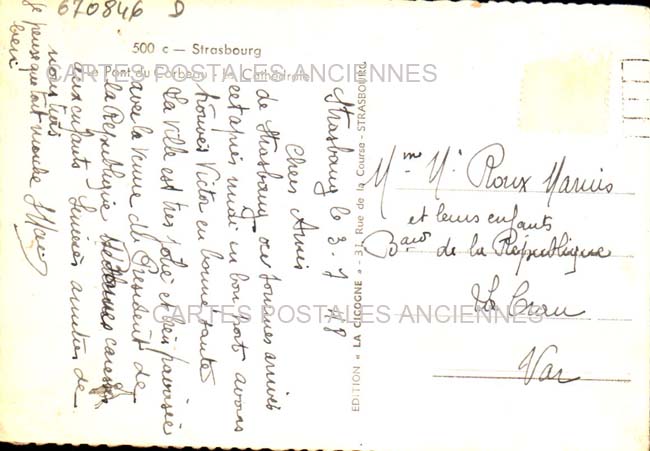 670846 D
500 c — Strasbourg
Le Pont du Corbeau - La Cathédrale
CARTES POSTALES ANCIENNES
CARTES POSTALES ANCIENNES
EDITION « LA CICOGNE » - 31, Rue de la Course - STRASBOURG
Strasbourg le 3-7
Chers Amis
de Strasbourg ou sommes arrivés
cet après midi en bon port avons
trouvés Victor en bonne santé
La ville est très jolie et bien pavoisée
avec la venue du Président de
la République
aux enfants amitiés de
nous trois
Je pense que tout monde
bien
Mme Mr Roux Marius
et leurs enfants
Bard de la République
La Crau
Var